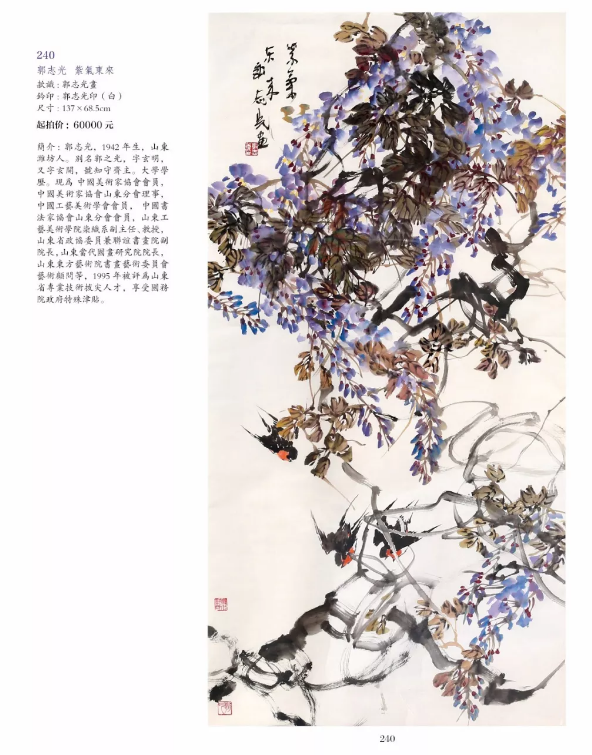 240
郭志光 紫氣東來
款識：郭志光畫
鈐印：郭志光印（白）
尺寸：137×68.5cm
起拍价：60000 元
簡介：郭志光，1942 年生，山東
濰坊人。別名郭之光，字玄明，
又字玄間，號知守齊主。大學學
歷。現為 中國美術家協會會員，
中國美術家協會山東分會理事，
中國工藝美術學會會員， 中國書
法家協會山東分會會員，山東工
藝美術學院染織系副主任、教授，
山東省政協委員兼聯誼書畫院副
院長，山東當代國畫研究院院長，
山東東方藝術院書畫藝術委員會
藝術顧問等，1995 年被評爲山東
省專業技術拔尖人才，享受國務
院政府特殊津貼。
紫氣
东来
郭志光画
240